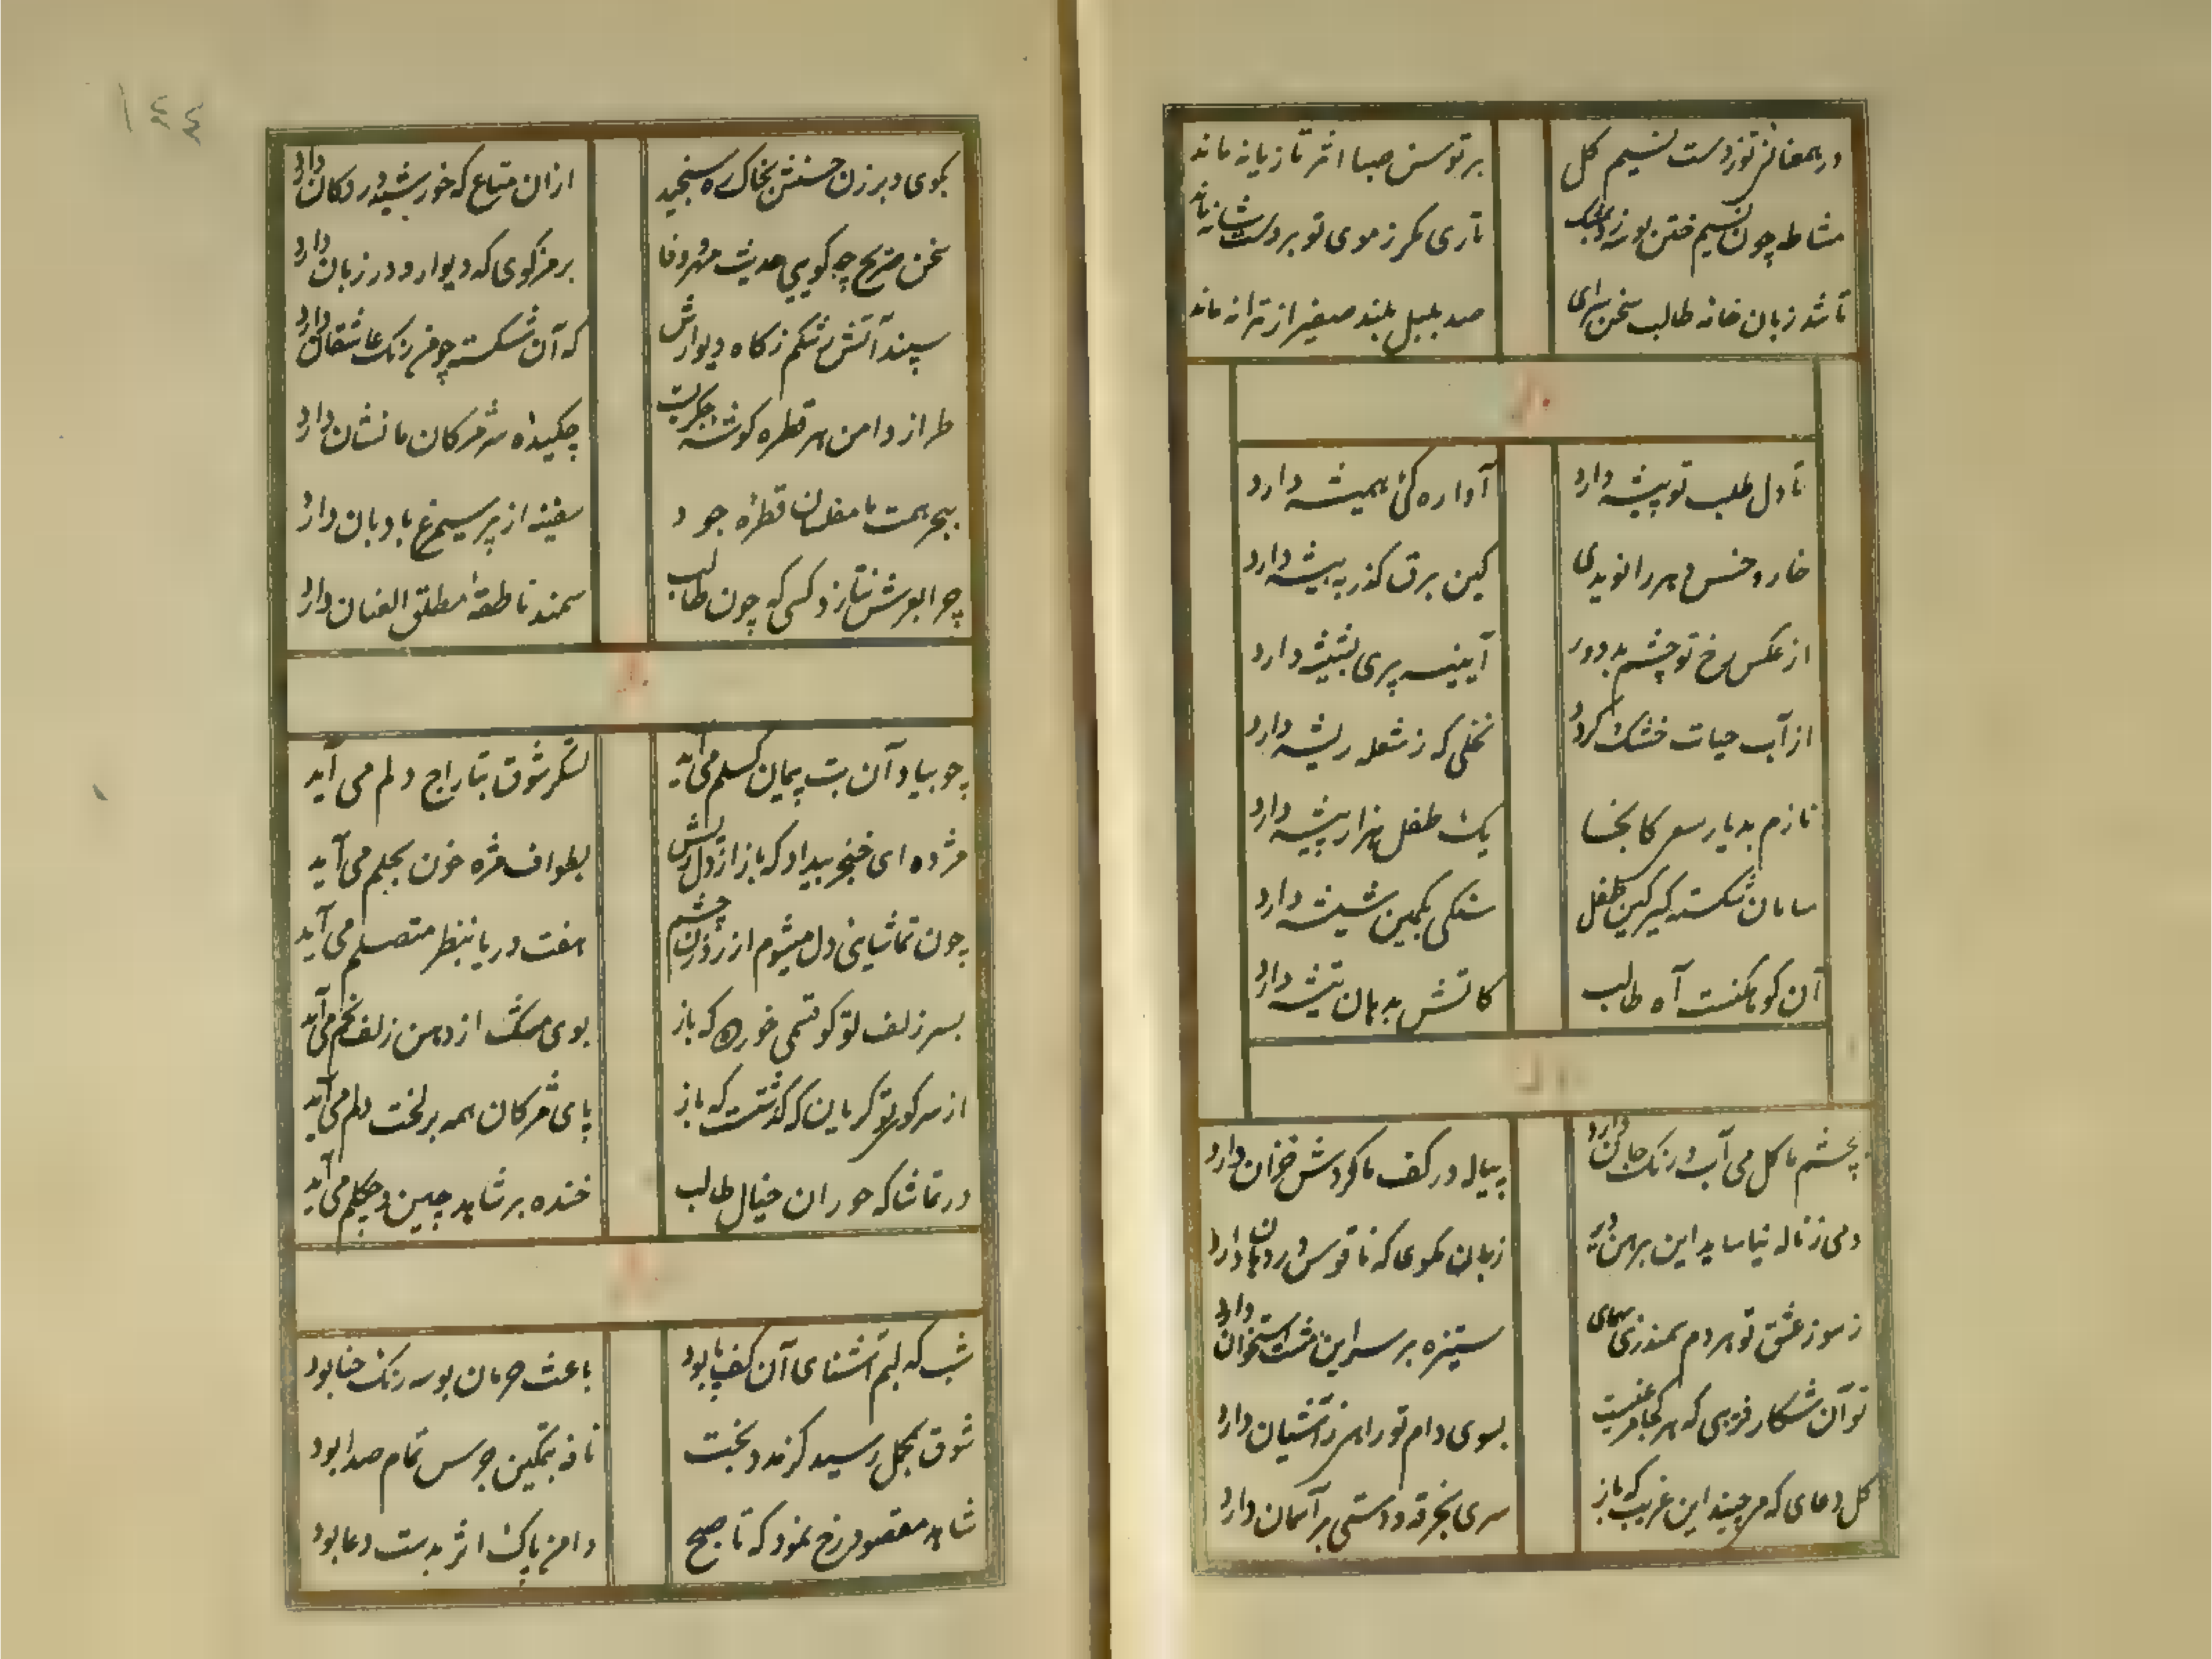 در همعنانی تو ز دست نسیم کل
بر توسن صبا اثر تازیانه ماند
مشاطه چون نسیم ختن بوسه زد
تاری مکر ز موی تو بر دست شانه ماند
تا شد زبان خامه طالب سخن سرای
صد بلبل بلند صفیر از ترانه ماند
تا دل طلب تو پیشه دارد
آواره کئ همیشه دارد
خار و خس دهر را نویدی
کین برق کذر به بیشه دارد
از عکس رخ تو چشم بد دور
آیینه پری بشیشه دارد
از آب حیات خشک کردد
نخلی که ز شعله ریشه دارد
نازم بدیار سعی کانجا
یک طفل هزار پیشه دارد
سامان شکسته کیر کین طفل
سنکی بکمین شیشه دارد
آن کوهکنست آه طالب
کاتش بدهان تیشه دارد
بچشم ما کل می آب و رنک جان دارد
پیاله در کف ما کردش خزان دارد
دمی ز ناله نیاساید این برهمن دیر
زبان مکوی که ناقوس در دهان دارد
ز سوز عشق تو هر دم سمندری همای
ستیزه بر سر این مشت استخوان دارد
تو آن شکار فریبی که هر کجا مرغیست
بسوی دام تو راهی ز آشیان دارد
کل دعای که میچیند این غریب که باز
سری بخرقه و دستی بر آسمان دارد
۱۴۴
بکوی و برزن حسنش بخاک ره سنجید
ازان متاع که خورشید در دکان دارد
سخن صریح چو کویی حدیث مهر و وفا
برمز کوی که دیوار و در زبان دارد
سپند آتش رشکم ز کاه دیوارش
که آن شکسته چو من رنک عاشقان دارد
طراز دامن هر قطره کوشه جکریست
چکیده مژه کان ما نشان دارد
ببحر همت ما مفلسان قطره جود
سفینه از پر سیمرغ بادبان دارد
چرا بعرش نتازد کسی که چون طالب
سمند ناطقه مطلق العنان دارد
چو بیاد آن بت پیمان کسلم می آید
لشکر شوق بتاراج دلم می آید
مژده ای خنجر بیداد که باز از دل ریش
بطواف مژه خون بحلم می آید
چون تماشایی دل میشوم از روزن چشم
هفت دریا بنظر متصلم می آید
بسر زلف تو کو قسمی خورده که باز
بوی مشک از دهن زلف می آید
از سر کوی تو کریان که کذشتست که باز
پای مژکان همه بر لخت دلم می آید
در تماشاکه حوران خیال طالب
خنده بر شاهد چین و چکلم می آید
شب که لبم آشنای آن کف پا بود
باعث حرمان بوسه رنک حنا بود
شوق بمحمل رسید کرنه دو بخت
ناقه بتمکین جرس تمام صدا بود
شاهد مقصود رخ نمود که تا صبح
دامن پاک اثر بدست دعا بود